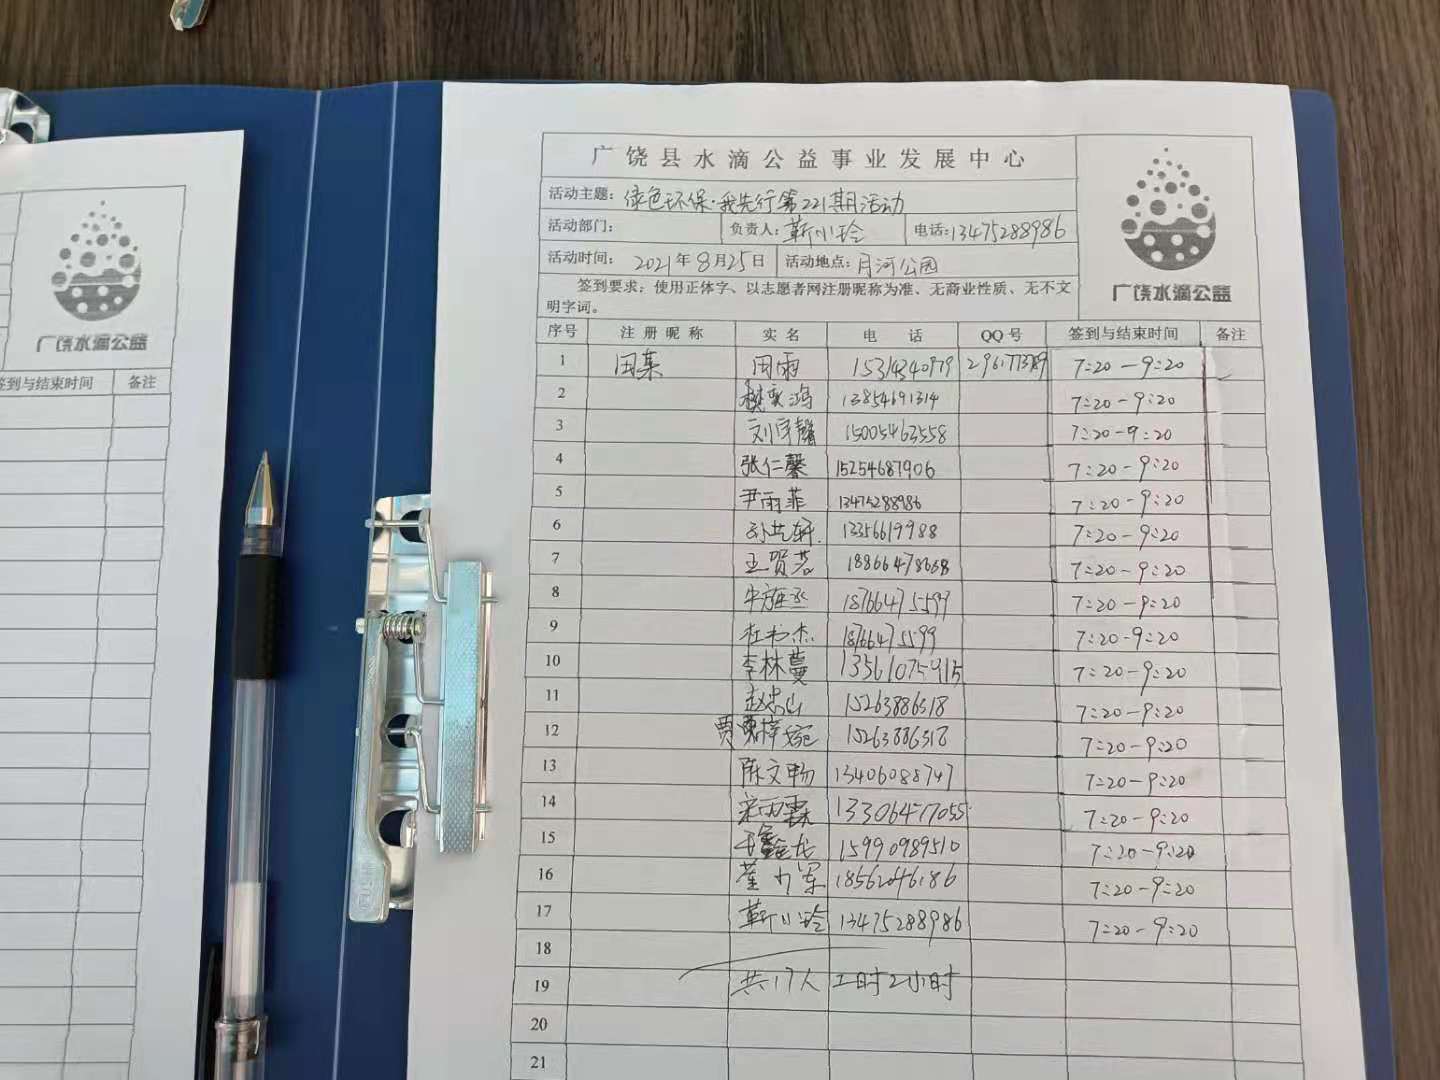 广饶县水滴公益事业发展中心
活动主题：绿色环保·我先行第221期活动
活动部门： 负责人：靳小玲 电话：13475288986
活动时间：2021年8月25日 活动地点：月河公园
签到要求：使用正体字、以志愿者网注册昵称为准、无商业性质、无不文
明字词。
广饶水滴公益
序号 注册昵称 实名 电话 QQ号 签到与结束时间 备注
1 田某 田雨 15314340979 7:20-9:20
2 13854691314 7:20-9:20
3 刘宇馨 15005463558 7:20-9:20
4 张仁馨 15254687906 7:20-9:20
5 尹雨菲 13475288986 7:20-9:20
6 孙艺轩 13356619988 7:20-9:20
7 王贺若 7:20-9:20
8 18766475599 7:20-9:20
9 杜书杰 18766475599 7:20-9:20
10 李林蔓 13561075915 7:20-9:20
11 赵忠山 15263886318 7:20-9:20
12 15263886318 7:20-9:20
13 陈文畅 13406088747 7:20-9:20
14 宋雨霖 13306477055 7:20-9:20
15 15990989510 7:20-9:20
16 董力军 18562046186 7:20-9:20
17 靳小玲 13475288986 7:20-9:20
18
19 共17人 工时2小时
20
21
广饶水滴公益
签到与结束时间 备注